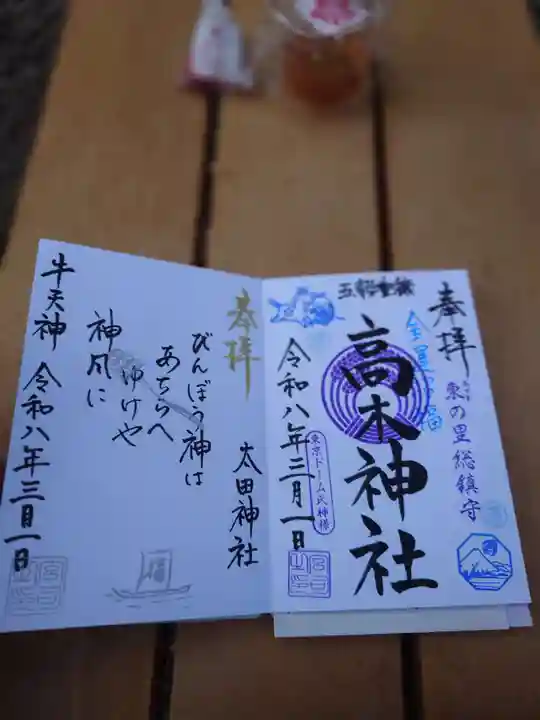 奉拝
東の里総鎮守
高木神社
東京ドーム氏神様
令和八年三月一日
奉拝
太田神社
びんぼう神は
あちらへ
ゆけや
神風に
牛天神 令和八年三月一日
福